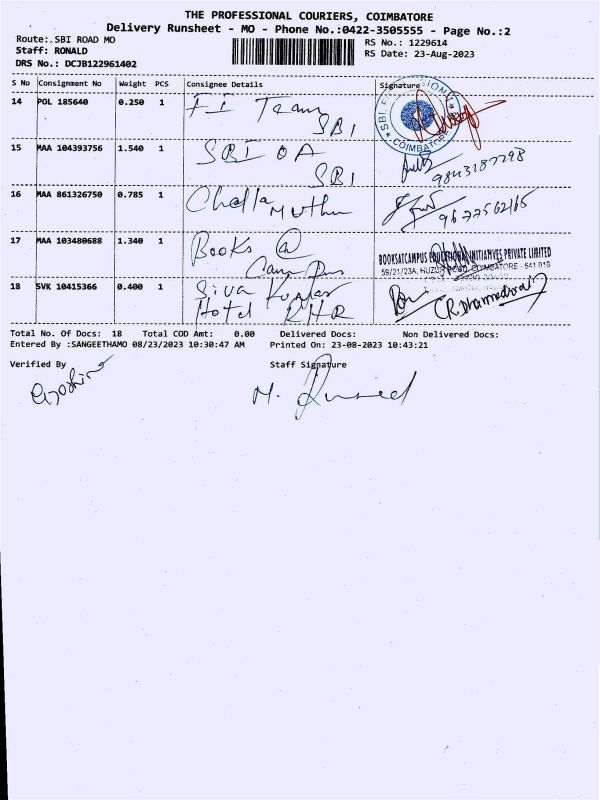 THE PROFESSIONAL COURIERS, COIMBATORE
Delivery Runsheet - MO - Phone No.:0422-3505555 - Page No.:2
Route:.SBI ROAD MO
RS No.: 1229614
Staff: RONALD
RS Date: 23-Aug-2023
DRS No.: DCJB122961402
S No Consignment No Weight PCS Consignee Details Signature
14 POL 185640 0.250 1 FI Team
SBI
COIMBATORE
15 MAA 104393756 1.540 1 SBI OA
SBI
9843187298
16 MAA 861326750 0.785 1 Chella
Muthu
17 MAA 103480688 1.340 1 Books @
Campus
BOOKSATCAMPUS EDUCATIONAL INITIATIVES PRIVATE LIMITED
59/21/23A, HUZUR ROAD, COIMBATORE - 641 018
18 SVK 10415366 0.400 1 Siva Kumar
Hotel RHR
Total No. Of Docs: 18 Total COD Amt: 0.00 Delivered Docs: Non Delivered Docs:
Entered By :SANGEETHAMO 08/23/2023 10:30:47 AM Printed On: 23-08-2023 10:43:21
Verified By Staff Signature